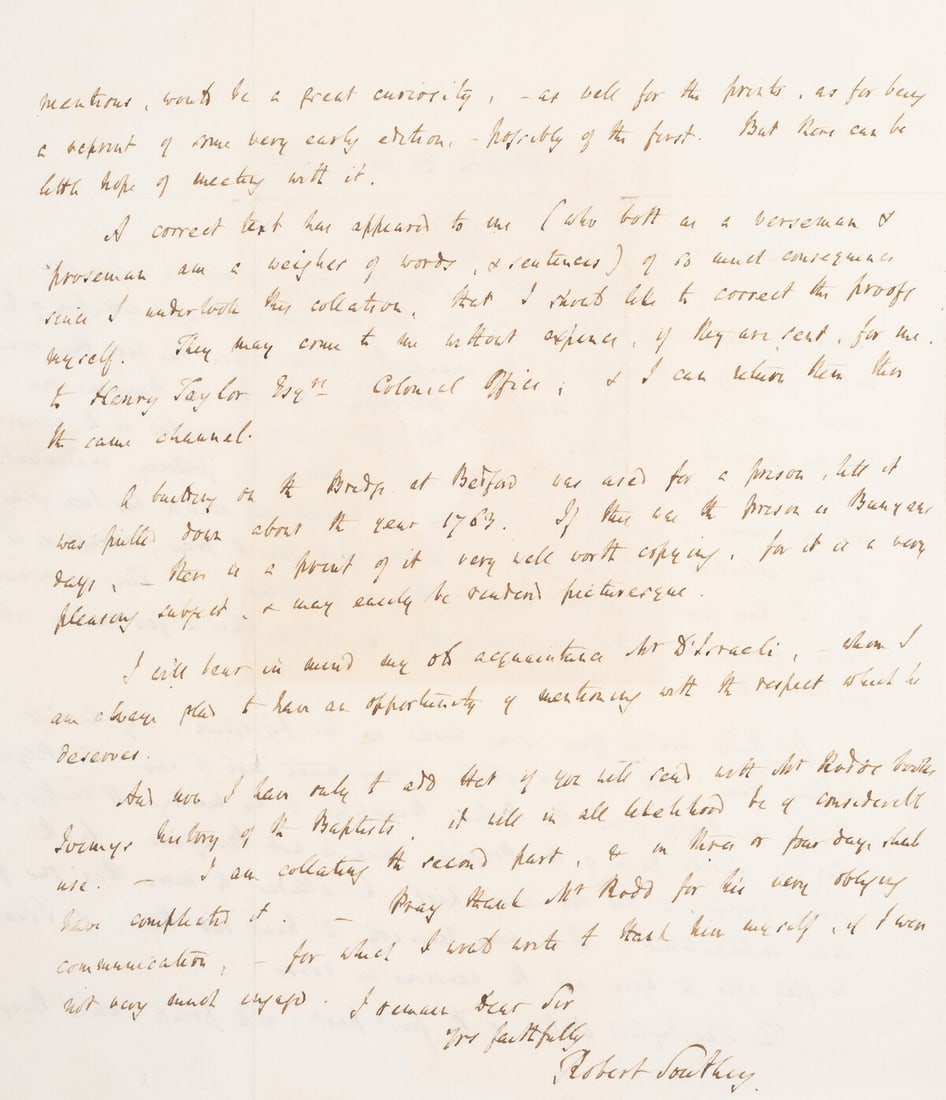 mentions, would be a great curiosity, – as well for the prints, as for being
a reprint of some very early edition, – possibly of the first. But there can be
little hope of meeting with it.
A correct text has appeared to me (who both as a verseman &
proseman am a weigher of words, & sentences) of so much consequence
since I undertook this collation, that I should like to correct the proofs
myself. They may come to me without expence, if they are sent, for me,
to Henry Taylor Esqre Colonial Office; & I can return them thro
the same channel.
A building on the Bridge at Bedford was used for a prison, till it
was pulled down about the year 1763. If this was the prison in Bunyans
days, – there is a print of it very well worth copying, for it is a very
pleasing subject, & may easily be rendered picturesque.
I will bear in mind my old acquaintance Mr D'Israeli, – whom I
am always glad to have an opportunity of mentioning with the respect which he
deserves.
And now I have only to add that if you will send with Mr Rodds books
Ivimeys history of the Baptists, it will in all likelihood be of considerable
use. – I am collating the second part, & in three or four days shall
have completed it. – Pray thank Mr Rodd for his very obliging
communication, – for which I would write & thank him myself, if I were
not very much engaged. I remain Dear Sir
yrs faithfully
Robert Southey.